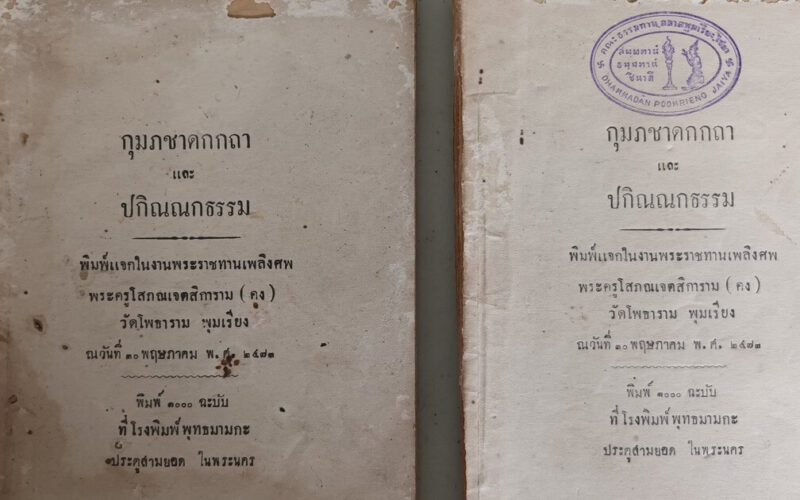 กุมภชาดกกถา
และ
ปกิณณกธรรม
พิมพ์แจกในงานพระราชทานเพลิงศพ
พระครูโสภณเจตสิการาม ( คง )
วัดโพธาราม พุมเรียง
ณวันที่ ๑๐ พฤษภาคม พ. ศ. ๒๔๗๓
พิมพ์ ๑๐๐๐ ฉะบับ
ที่โรงพิมพ์พุทธมามกะ
ประตูสามยอด ในพระนคร
คณะธรรมทาน ตลาดพุมเรียง ไชยา
สพฺพทานํ
ธมฺมทานํ
ชินาติ
DHAMMADAN POOMRIENG JAIYA
กุมภชาดกกถา
และ
ปกิณณกธรรม
พิมพ์แจกในงานพระราชทานเพลิงศพ
พระครูโสภณเจตสิการาม ( คง )
วัดโพธาราม พุมเรียง
ณวันที่ ๑๐ พฤษภาคม พ. ศ. ๒๔๗๓
พิมพ์ ๑๐๐๐ ฉะบับ
ที่โรงพิมพ์พุทธมามกะ
ประตูสามยอด ในพระนคร